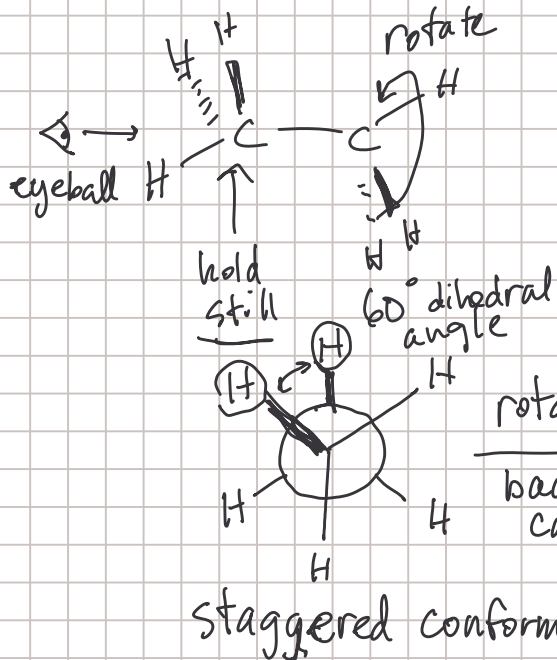 rotate
H H
H
C C
eyeball H
H H
hold
still
60° dihedral
angle
H
H
H
rota
bac
ca
H
H
H
staggered conform